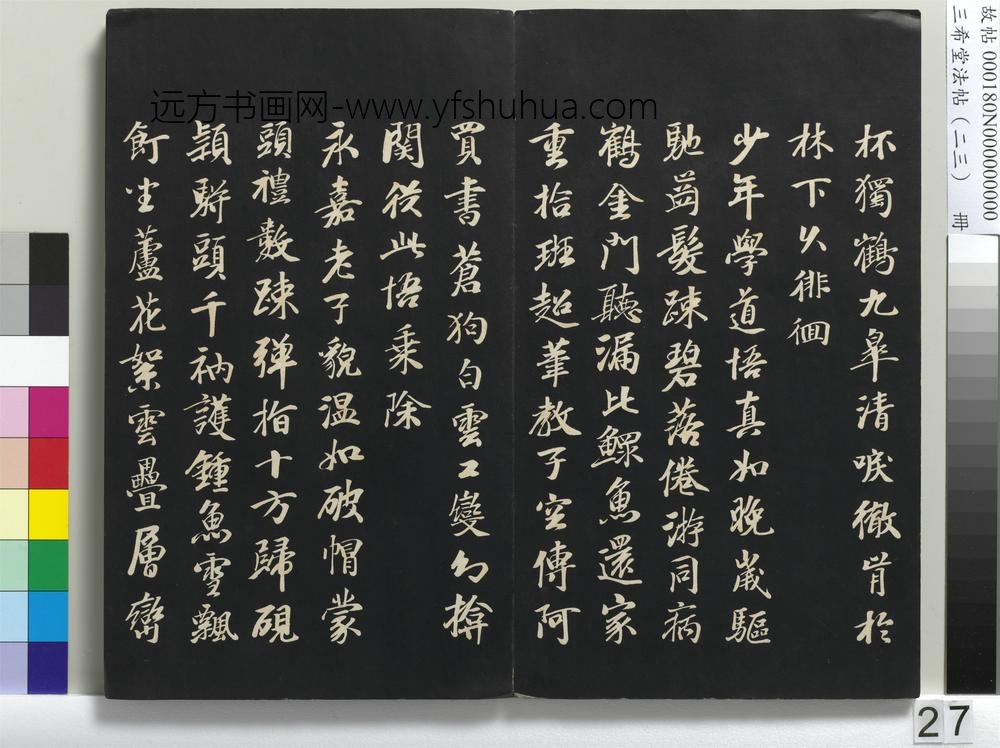 杯獨鶴九臯清唳徹肯於
林下久徘徊
少年學道悟真如晚歲驅
馳齒髮踈碧落倦游同病
鶴金門聽漏比鰥魚還家
重拾班超筆教子空傳阿
買書蒼狗白雲工變幻
関從此悟乗除
永嘉老子貌温如破帽蒙
頭禮數踈弹指十方歸硯
頴駢頭千衲護鍾魚雪飄
飣坐蘆花絮雲疊層巒
远方书画网-www.yfshuhua.com
故帖 000180N000000000
三希堂法帖（二三） 冊
27